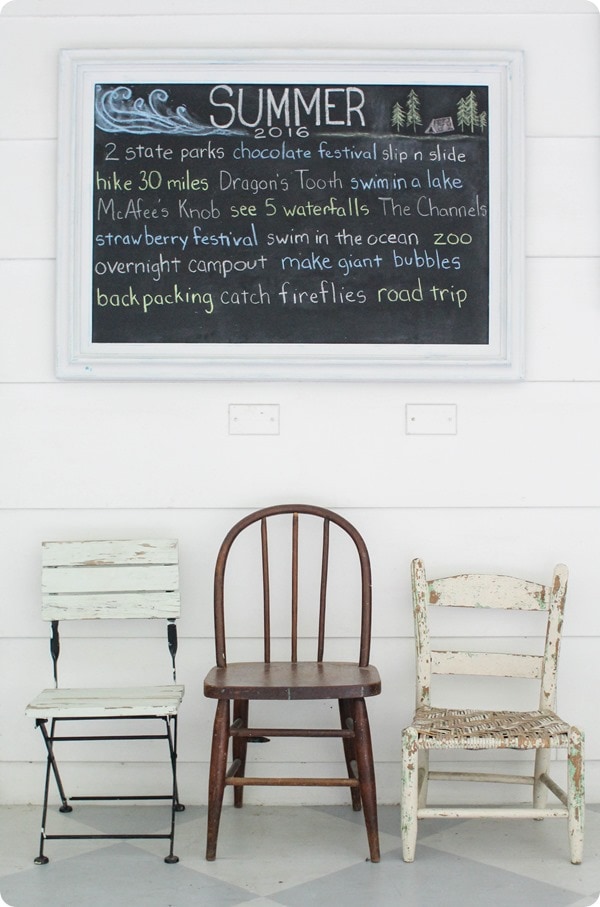 SUMMER
2016
2 state parks chocolate festival slip n slide
hike 30 miles Dragon's Tooth swim in a lake
McAfee's Knob see 5 waterfalls The Channels
strawberry festival swim in the ocean zoo
overnight campout make giant bubbles
backpacking catch fireflies road trip